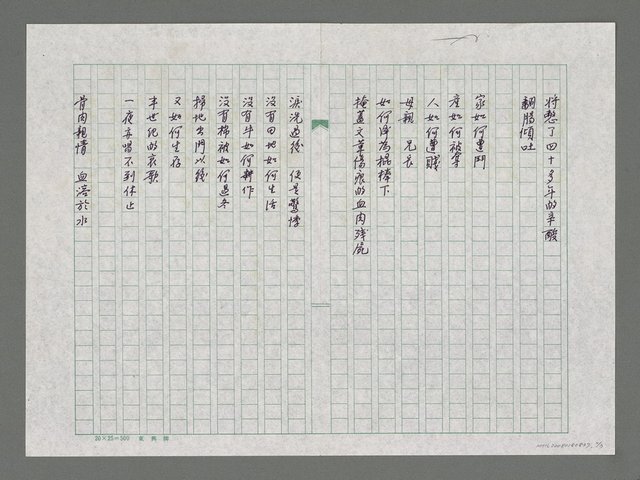 將憋了四十多年的辛酸
翻腸傾吐
家如何遭鬥
產如何被拿
人如何遭賤
母親 兄長
如何淪為棍棒下
掩蓋文革傷痕的血肉殘屍
淚洗過後 便是驚悸
沒有田地如何生活
沒有牛如何耕作
沒有棉被如何過冬
掃地出門以後
又如何生存
半世紀的哀歌
一夜哀唱不到休止
骨肉親情 血濃於水
20×25=500